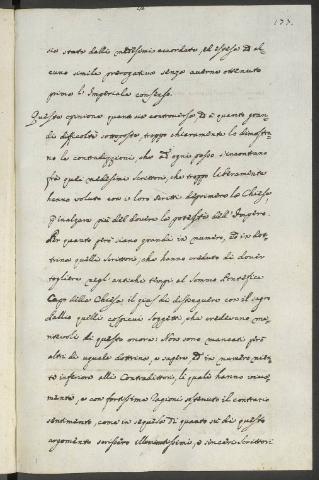 177.
sia stato dalli medesimi accordato, ed esteso ad al-
cuno simile prerogativa senza averne ottenuto
prima l'Imperiale consenso.
Questa opinione quanto sia controversa, ed a quante gran-
di difficoltà sottoposta, troppo chiaramente lo dimostra-
no le contradizzioni, che ad ogni passo s'incontrano
frà quei medesimi Scrittori, che troppo liberamente
hanno voluto con i loro scritti deprimere la Chiesa,
e inalzare più del dovere la potestà dell'Impero.
Per quanto però siano grandi in numero, ed in dot-
trina quelli Scrittori, che hanno creduto di dover
togliere negl'antichi tempi al Sommo Pontefice
Capo della Chiesa il jus di distinguere con il sagro
dalla quelli cospicui Soggetti, che credevano me-
ritevoli di questo onore: Non sono mancati però
altri di uguale dottrina, e sapere, ed in numero nien-
te inferiore alli Contradittori, li quali hanno viva-
mente, e con fortissime ragioni sostenuto il contrario
sentimento, come in sequela di quanto sù di questo
argomento scrissero e sinceri Scrittori